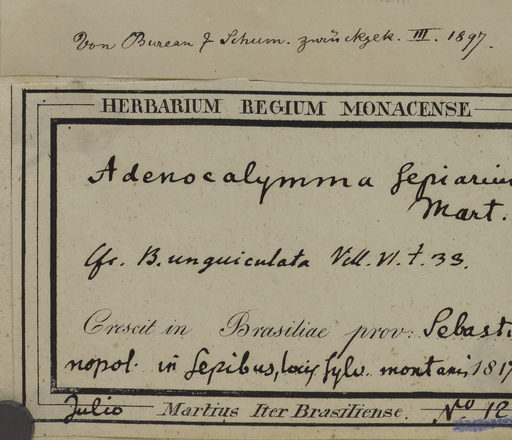 Von Bureau & Schum. zurückgek. III. 1897.
HERBARIUM REGIUM MONACENSE
Adenocalymma sepiarium
Mart.
Cfr. B. unguiculata Vell. VI. t. 33.
Crescit in Brasiliae prov: Sebasti
nopol. in sepibus, locis sylv. montanis 1817
Julio Martius Iter Brasiliense. No 12